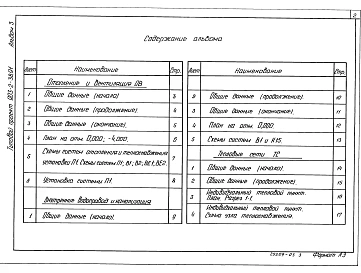 2
Альбом 3
Содержание альбома
Лист Наименование Стр.
Отопление и Вентиляция ОВ
1 Общие данные (начало) 3
2 Общие данные (продолжение) 4
3 Общие данные (окончание) 5
4 План на отм. 0,000; -4,000 6
5 Схемы систем отопления и теплоснабжения
установки П1. Схемы систем П1; В1; В2; ВЕ1; ВЕ2. 7
6 Установка системы П1 8
Внутренние водопровод и канализация
1 Общие данные (начало). 9
Лист Наименование Стр.
2 Общие данные (продолжение) 10
3 Общие данные (окончание) 11
4 План на отм. 0,000 12
5 Схемы систем В1 и К15. 13
Тепловые сети ТС
1 Общие данные (начало). 14
2 Общие данные (продолжение). 15
3 Индивидуальный тепловой пункт.
План. Разрез 1-1. 16
4 Индивидуальный тепловой пункт.
Схема узла теплоснабжения. 17
Формат А3